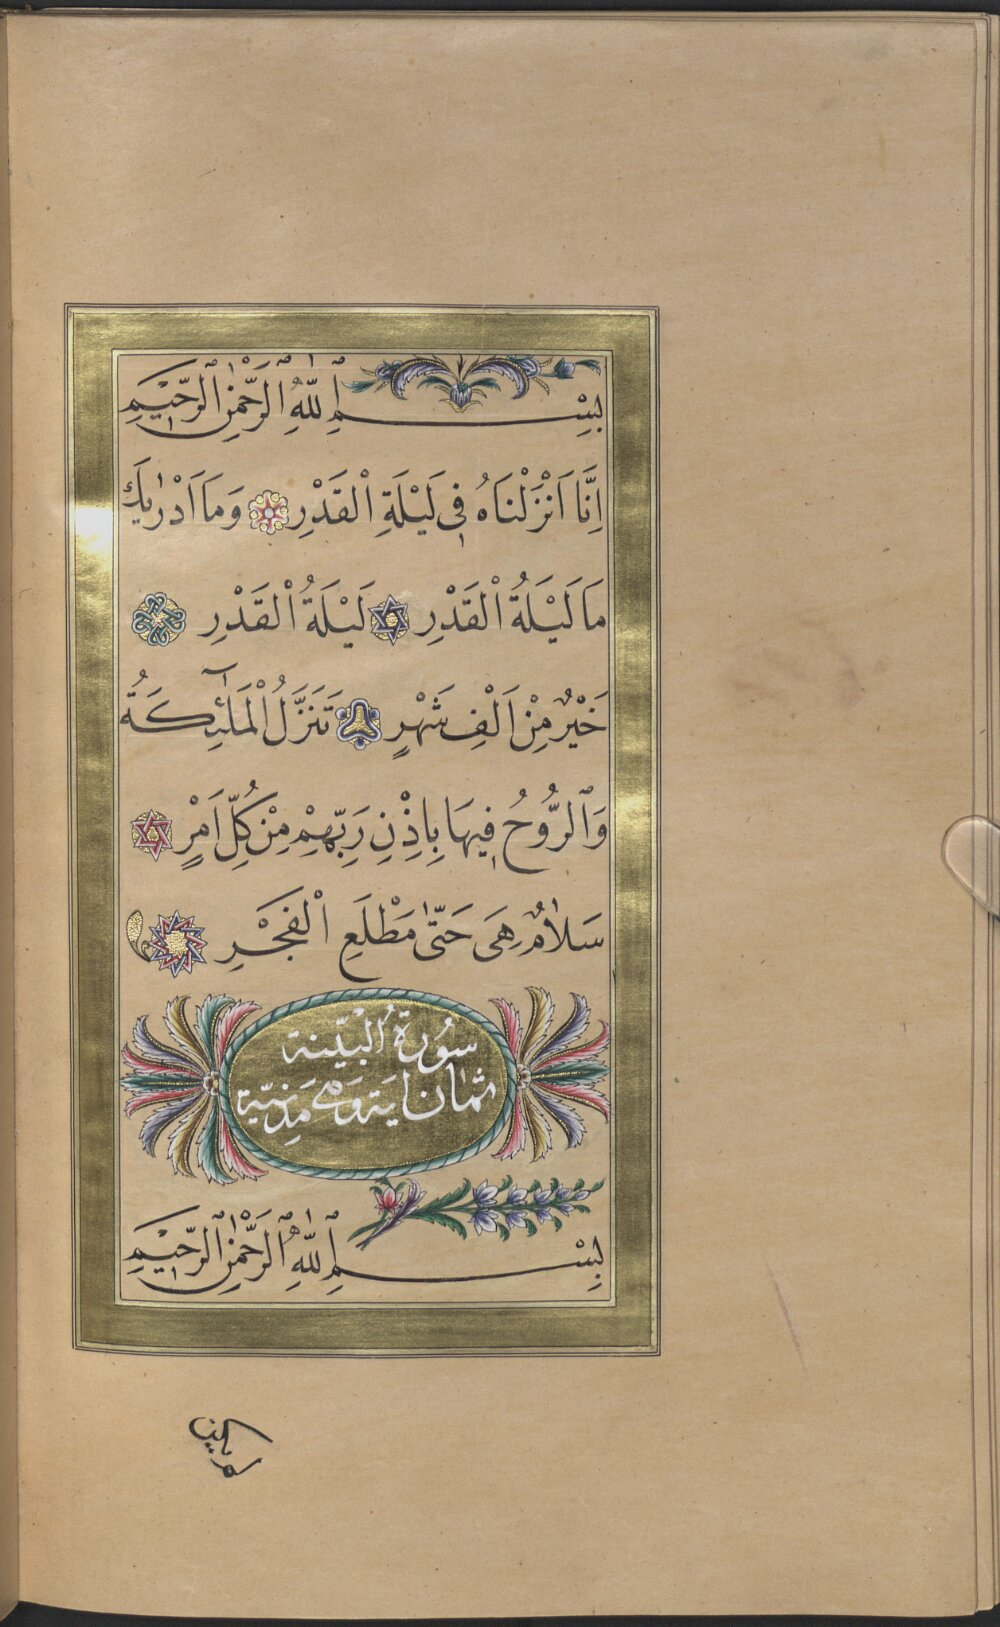 بِسْمِ ٱللّٰهِ ٱلرَّحْمٰنِ ٱلرَّحِيْمِ
اِنَّا اَنْزَلْنَاهُ فِى لَيْلَةِ الْقَدْرِ وَمَا اَدْرٰيكَ
مَا لَيْلَةُ الْقَدْرِ لَيْلَةُ الْقَدْرِ
خَيْرٌ مِنْ اَلْفِ شَهْرٍ تَنَزَّلُ الْمَلٰٓئِكَةُ
وَٱلرُّوحُ فِيهَا بِاِذْنِ رَبِّهِمْ مِنْ كُلِّ اَمْرٍ
سَلَامٌ هِىَ حَتّٰى مَطْلَعِ الْفَجْرِ
سُورَةُ الْبَيِّنَة
ثَمَان اٰيَة وَهِى مَدَنِيَّة
بِسْمِ ٱللّٰهِ ٱلرَّحْمٰنِ ٱلرَّحِيْمِ
لم يكن